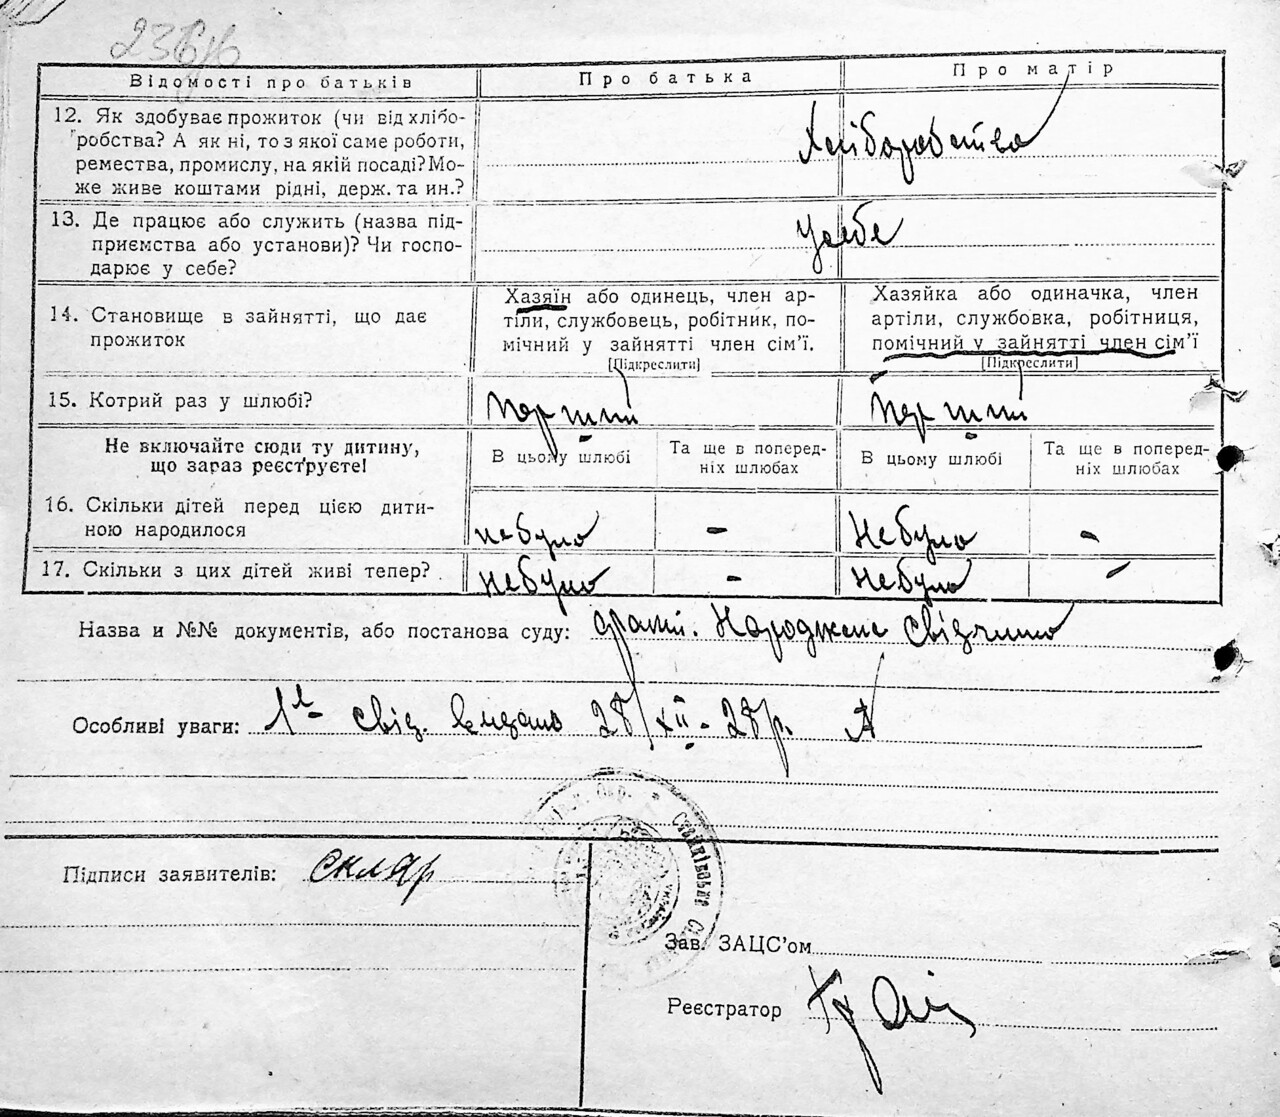 236
Відомості про батьків Про батька Про матір
12. Як здобуває прожиток (чи від хлібо-
робства? А як ні, то з якої саме роботи,
ремества, промислу, на якій посаді? Мо-
же живе коштами рідні, держ. та ин.?
Хліборобства
13. Де працює або служить (назва під-
приємства або установи)? Чи госпо-
дарює у себе?
У себе
14. Становище в зайнятті, що дає
прожиток
Хазяїн або одинець, член ар-
тіли, службовець, робітник, по-
мічний у зайнятті член сім'ї.
[Підкреслити]
Хазяйка або одиначка, член
артіли, службовка, робітниця,
помічний у зайнятті член сім'ї
[Підкреслити]
15. Котрий раз у шлюбі? Перший Перший
Не включайте сюди ту дитину,
що зараз реєструєте!
В цьому шлюбі
Та ще в поперед-
ніх шлюбах
В цьому шлюбі
Та ще в поперед-
ніх шлюбах
16. Скільки дітей перед цією дити-
ною народилося
небуло - Небуло -
17. Скільки з цих дітей живі тепер? небуло - небуло -
Назва и №№ документів, або постанова суду: Народжене
Особливі уваги: свід. видано 28/XII-28р.
Підписи заявителів: скляр
Зав. ЗАЦС'ом
Реєстратор